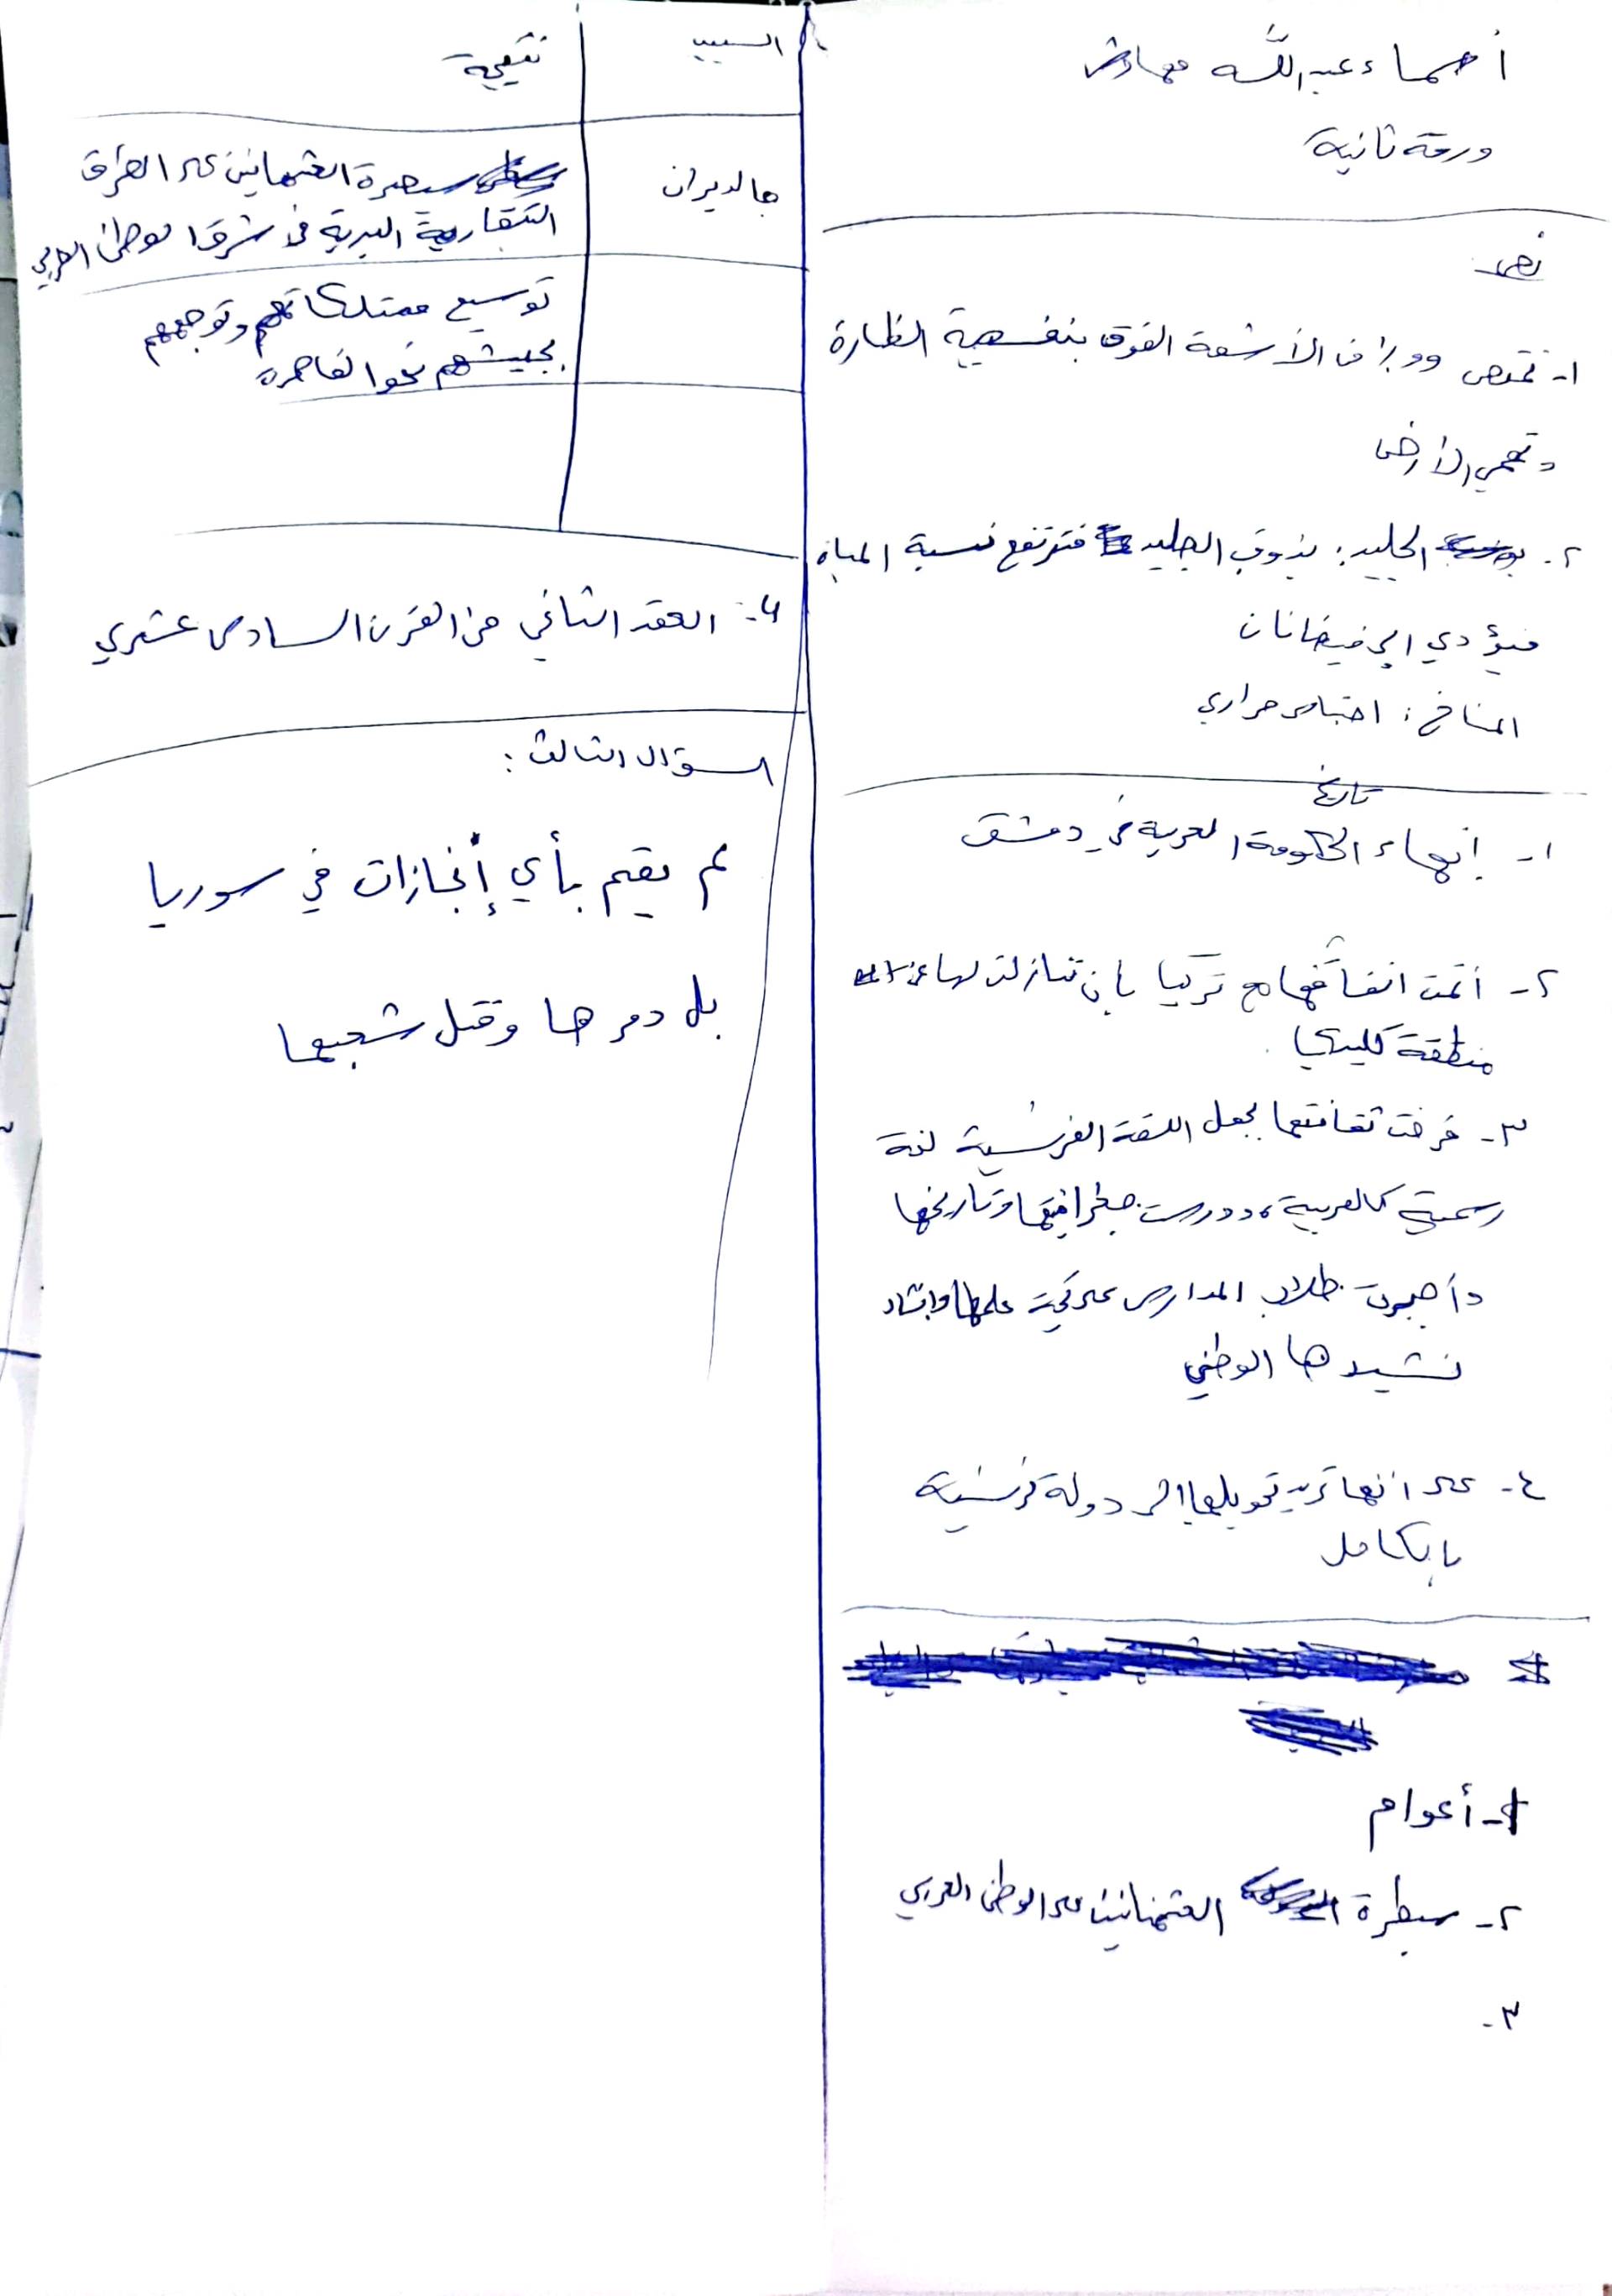 أسماء عبد الله
ورقة ثانية
نص
١- تمتص ٩٩٪ من الأشعة الفوق بنفسجية الضارة
وتحمي الأرض
٢. الجليد: يذوب الجليد فترتفع نسبة المياه
فيؤدي إلى فيضانات
المناخ: احتباس حراري
تاريخ
١- إنهاء الحكومة العربية في دمشق
٢- أتمت اتفاقها مع تركيا بأن تنازلت لها عن
منطقة كليكيا
٣- فرضت ثقافتها بجعل اللغة الفرنسية لغة
رسمية كالعربية، ودرست جغرافيتها وتاريخها
وأجبرت طلاب المدارس على تحية علمها وإنشاد
نشيدها الوطني
٤- على أنها تريد تحويلها إلى دولة فرنسية
بالكامل
١- أعوام
٢- سيطرة العثمانيين على الوطن العربي
٣-
السبب نتيجة
جالديران سيطرة العثمانيين على الطرق
التجارية البرية في شرق الوطن العربي
توسيع ممتلكاتهم وتوجههم
بجيشهم نحو القاهرة
٤- العقد الثاني من القرن السادس عشري
السؤال الثالث:
لم يقم بأي إنجازات في سوريا
بل دمرها وقتل شعبها